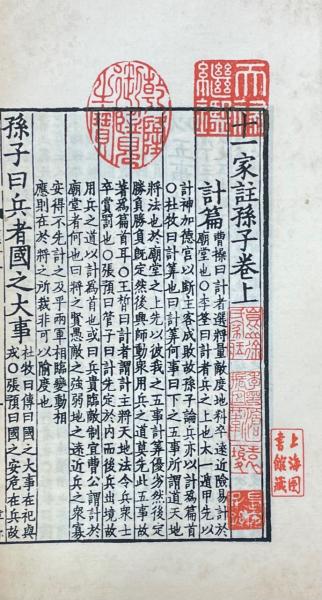 天祿繼鑑
乾隆御覽之寶
十一家註孫子卷上
計篇
曹操曰計者選將量敵度地料卒遠近險易計於
廟堂也○李筌曰計者兵之上也太一遁甲先以
計神加德宮以斷主客成敗故孫子論兵亦以計為篇首
○杜牧曰計算也曰計算何事曰下之五事所謂道天地
將法也於廟堂之上先以彼我之五事計算優劣然後定
勝負勝負既定然後興師動眾用兵之道莫先此五事故
著為篇首耳○王晳曰計者謂計主將天地法令兵眾士
卒賞罰也○張預曰管子曰計先定於內而後兵出境故
用兵之道以計為首也或曰兵貴臨敵制宜曹公謂計於
廟堂者何也曰將之賢愚敵之強弱地之遠近兵之眾寡
安得不先計之及乎兩軍相臨變動相
應則在於將之所裁非可以隃度也
孫子曰兵者國之大事
杜牧曰傳曰國之大事在祀與
戎○張預曰國之安危在兵故
上海圖
書館藏